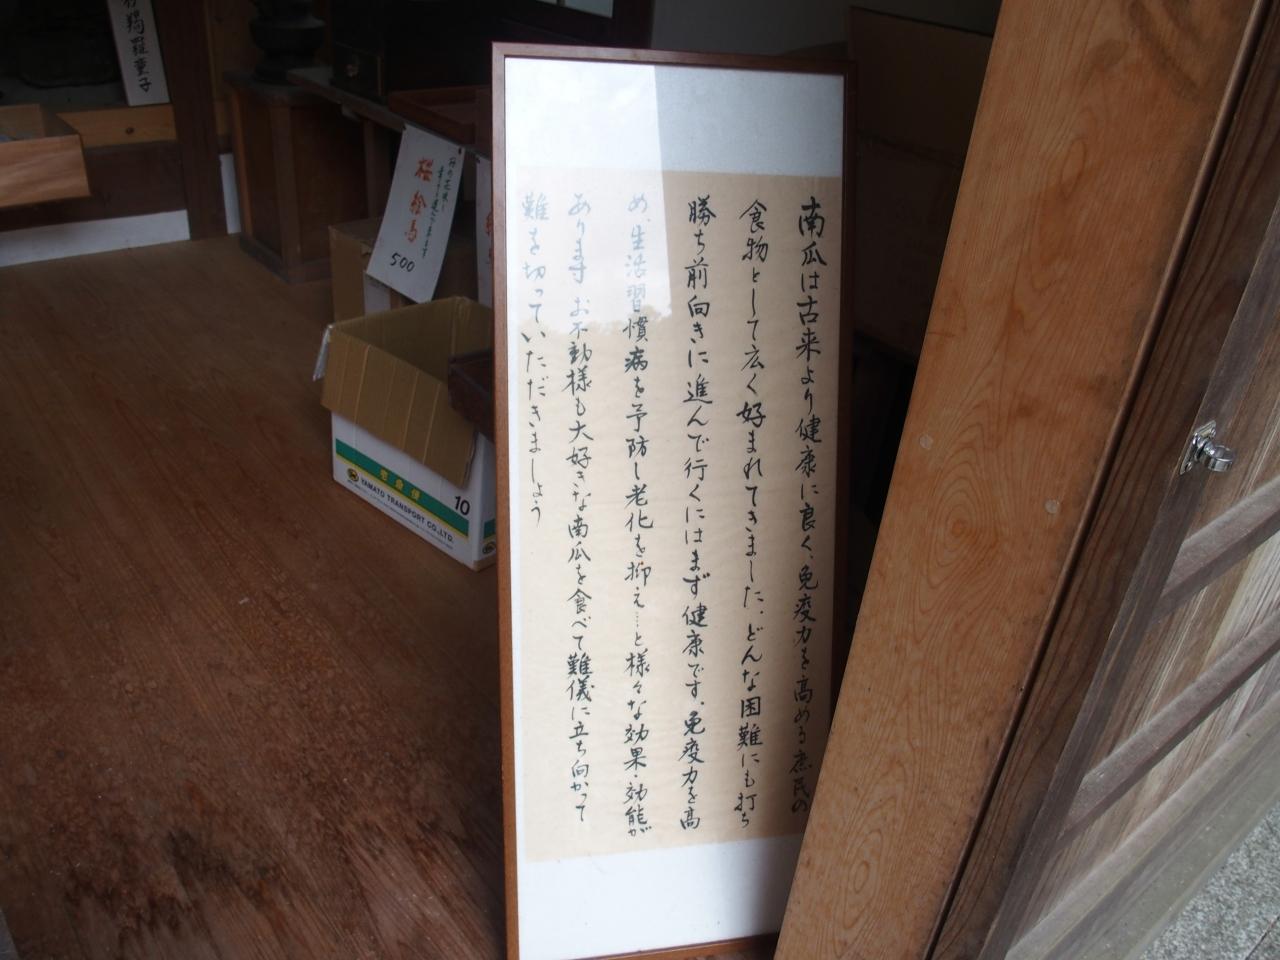 南瓜は古来より健康に良く、免疫力を高める庶民の
食物として広く好まれてきました。どんな困難にも打ち
勝ち前向きに進んで行くにはまず健康です。免疫力を高
め、生活習慣病を予防し老化を抑え…と様々な効果・効能が
あります お不動様も大好きな南瓜を食べて難儀に立ち向かって
難を切っていただきましょう
桜絵馬
500
羯羅童子
宅急便
YAMATO TRANSPORT CO., LTD.
10